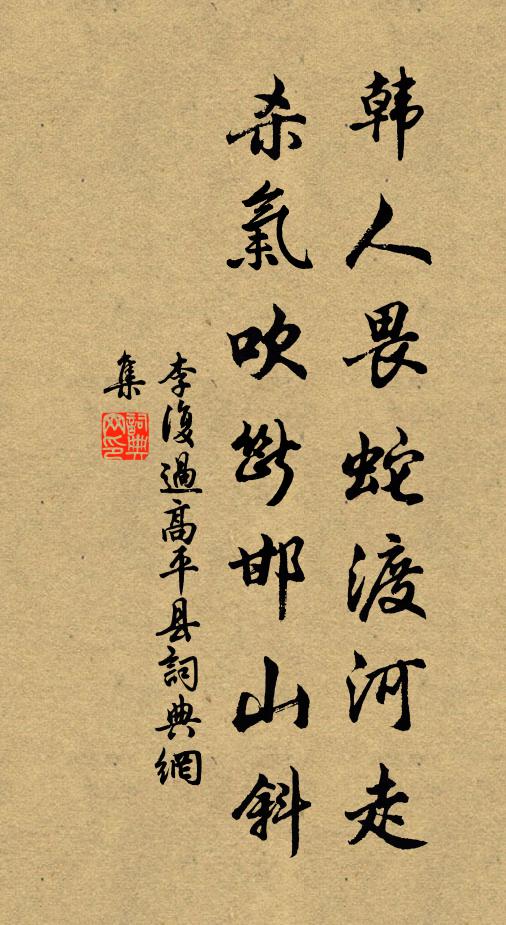 韩人畏蛇渡河走
杀氣吹斷邯山斜
李復過高平县詞典網
集
詞典网印